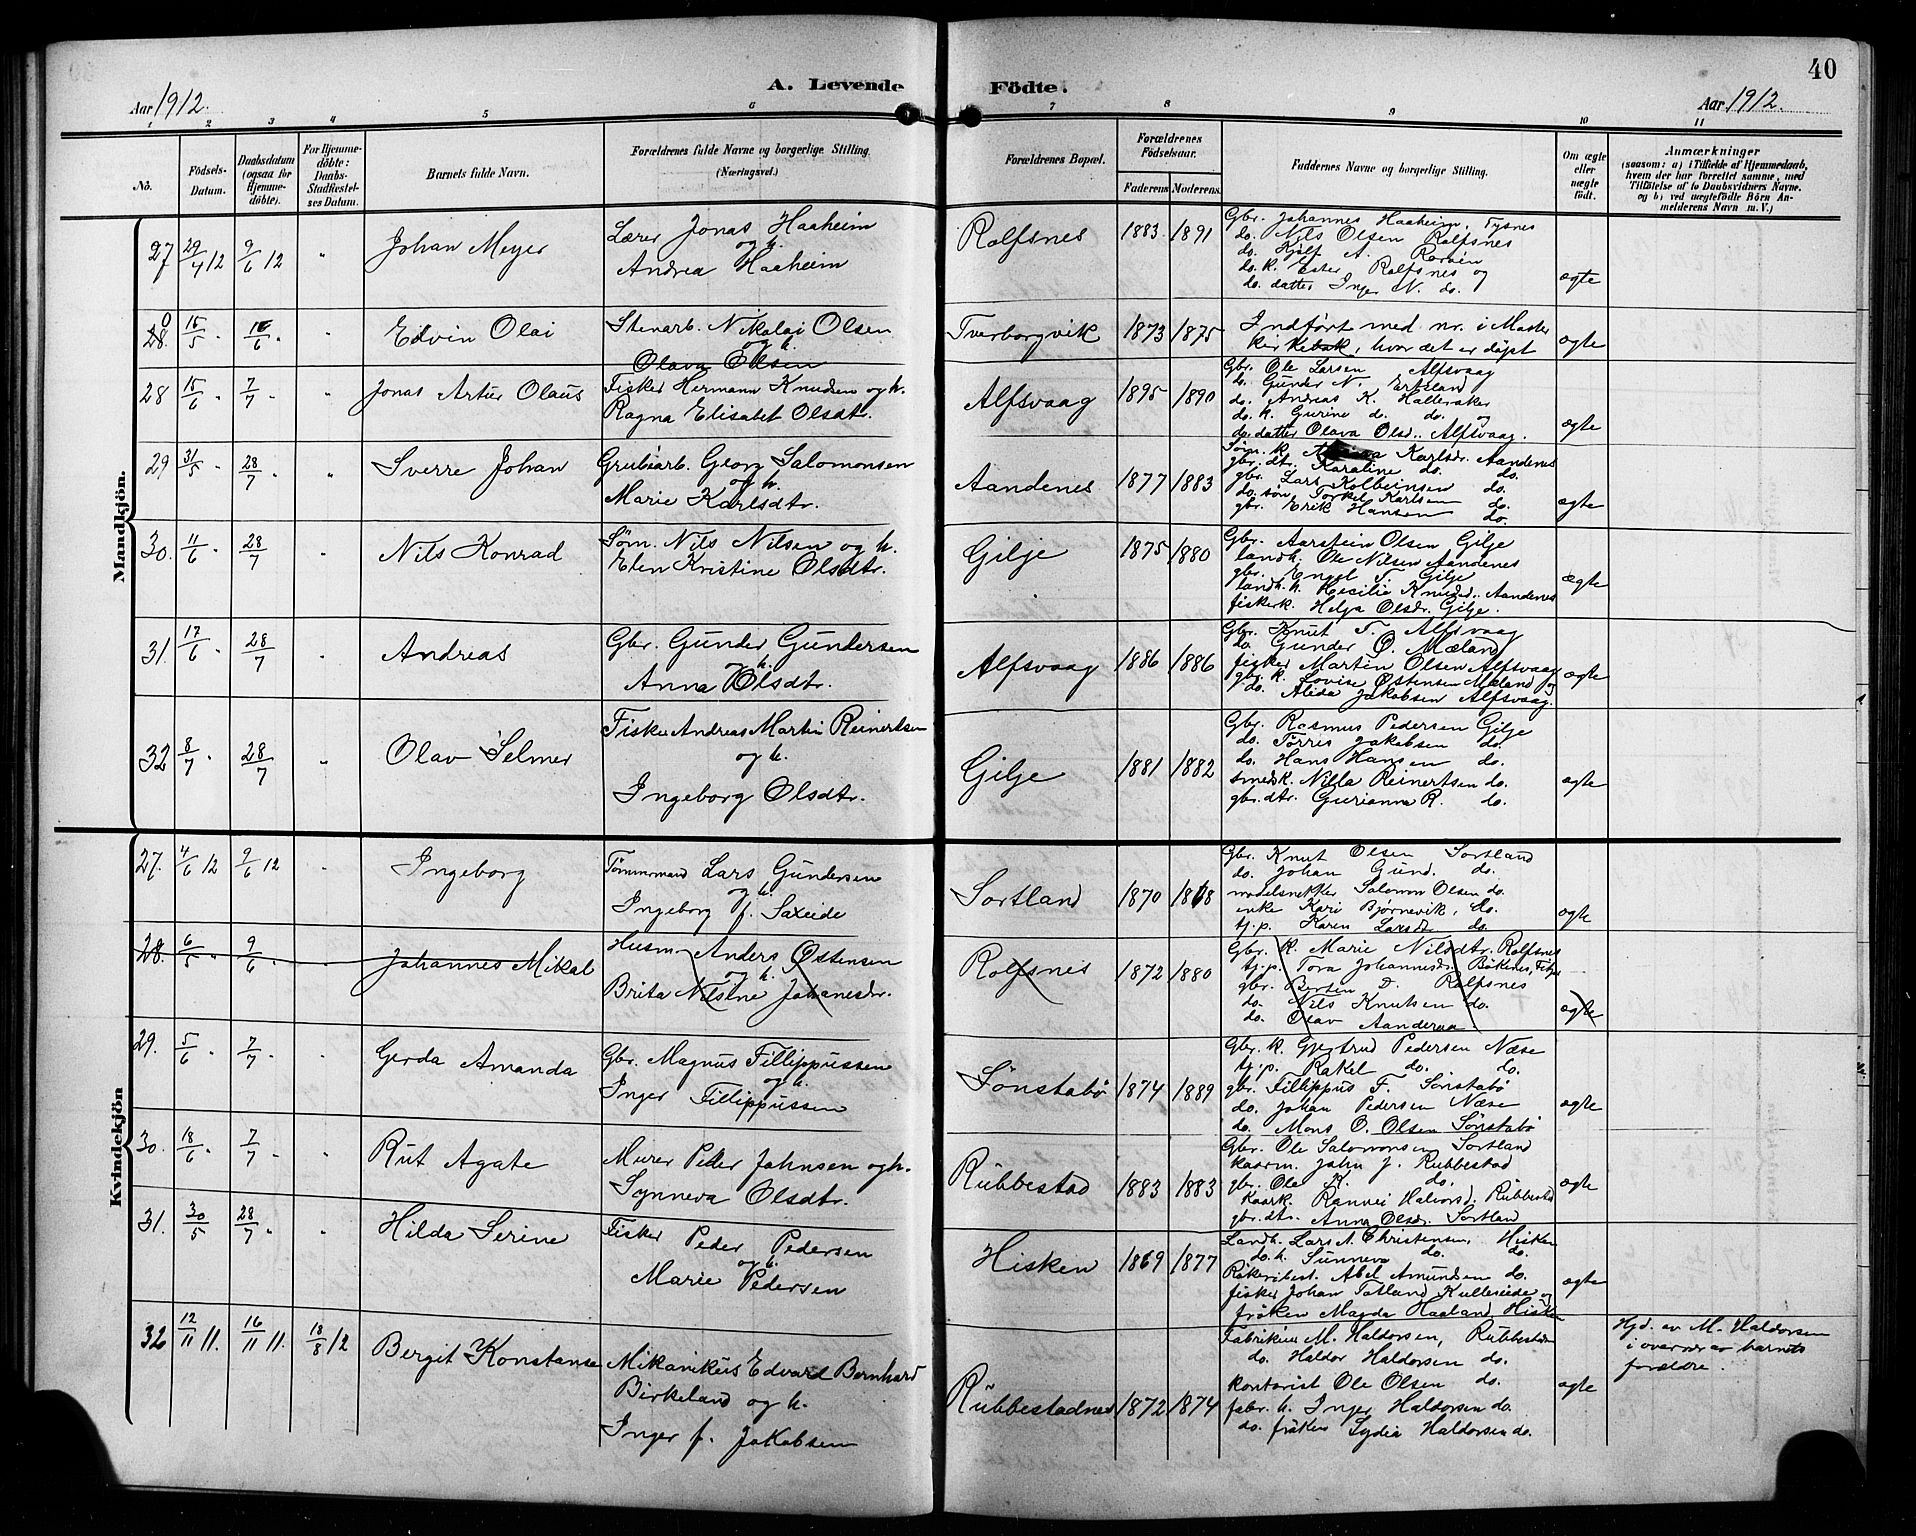 40
A. Levende Födte.
Aar 1912.
Aar 1912.
1 2 3 4 5 6 7 8 9 10 11
No.
Födsels-Datum.
Daabsdatum (ogsaa for Hjemme-döbte).
For Hjemme-döbte: Daabs-Stadfæstel-ses Datum.
Barnets fulde Navn.
Forældrenes fulde Navne og borgerlige Stilling. (Næringsvei.)
Forældrenes Bopæl.
Forældrenes Födselsaar.
Faderens. Moderens.
Faddernes Navne og borgerlige Stilling.
Om ægte eller uægte födt.
Anmærkninger
(saasom: a) i Tilfælde af Hjemmedaab, hvem der har forrettet samme, med Tilföielse af to Daabsvidners Navne, og b) ved uægtefödte Börn An-melderens Navn m. V.)
Mandkjön.
27 29/4 12 9/6 12 " Johan Meyer
Lærer Jonas Haaheim
og h.
Andrea Haaheim
Rolfsnes 1883. 1891
Gbr. Johannes Haaheim, Tysnes
do. Nils Olsen Rolfsnes
do. k. Ester Rolfsnes og
do. datter Inger N. do.
ægte
0
28. 15/5 " Edvin Olai
Stenarb. Nikolai Olsen
og h.
Olava Olsen
Tverborgvik 1873 1875
Indført med nr. i Møster
kirkebok, hvor det er døpt
ægte
28 15/6 " 7/7 " Jonas Artur Olaus
Fisker Hermann Knudsen og h.
Ragna Elisabet Olsdtr.
Alfsvaag 1895 1890
Gbr. Ole Larsen Alfsvaag
d. Gunder N. Ertsland
do. Andreas K. Halleraker
do. h. Gurine d. do. og
do. datter Olava Olsd. Alfsvaag.
ægte
29 31/5 28/7 " Sverre Johan
Grubearb. Georg Salomonsen
og h.
Marie Karlsdtr.
Aandenes 1877 1883
Karlsdr. Aandenes
gbr. dtr. Karoline do. do.
gbr. Lars Kolbeinsen do.
do. søn Torkel Karlsen do.
gbr. Erik Hansen do.
ægte
30. 11/6 " 28/7 Nils Konrad
Søm. Nils Nilsen og h.
Elen Kristine Olsdtr.
Gilje 1875 1880
Gbr. Aarstein Olsen Gilje
landh. Ole Nilsen Aandenes
gbr. Engel T. Gilje
landh. h. Cecilie Knudsd. Aandenes
fiskerk. Helga Olsdr. Gilje.
ægte
31. 17/6 28/7 Andreas
Gbr. Gunder Gundersen
og h.
Anna Olsdtr.
Alfsvaag 1886 1886
Gbr. Knut T. Alfsvaag
do. Gunder Ø. Mæland
fisker Martin Olsen Alfsvaag
gbr. k. Lovise Østensen Mæland og
do. Alida Jakobsen Alfsvaag.
ægte
32 8/7 " 28/7 " Olav Selmer
Fisker Andreas Martin Reinertsen
og h.
Ingeborg Olsdtr.
Gilje 1881 1882
Gbr. Rasmus Pedersen Gilje
do. Tørris Jakobsen do.
do. Hans Hansen do.
smedk. Nilla Reinertsen do.
gbr. dtr. Gurianna R. do.
ægte
Kvindekjön
27. 4/6 12 9/6 12 Ingeborg
Tømmermand Lars Gundersen
og h.
Ingeborg f. Saxeide
Sortland 1870
Gbr. Knut Olsen Sortland
do. Johan Gund. do.
modelsnekker Salomon Olsen do.
enke Kari Bjørnevik, do.
tj.p. Karen Larsd. do.
ægte
28. 6/5 " 9/6 " Johannes Mikal
Husm. Anders Østensen
og h.
Brita Nilsine Johanesdr.
Rolfsnes 1872 1880
Gbr. k. Marie Nilsdtr. Rolfsnes
tj.p. Tora Johannesdr. Bökenes, Fitjar
gbr. Berten D. Rolfsnes
do. Nils Knutsen do.
do. Olav Aanderaa
ægte
29. 5/6 " 7/7 " Gerda Amanda
Gbr. Magnus Fillippussen
og h.
Inger Fillippussen
Sönstabö 1874 1889
Gbr. k. Gjertrud Pedersen Næse
tj.p. Rakel do. do.
gbr. Fillippus F. Sönstabö
do. Johan Pedersen Næse
do. Mons O. Olsen Sönstabö
ægte
30. 18/6 " 7/7 " Rut Agate
Murer Peder Johnsen og h.
Synneva Olsdtr.
Rubbestad 1883 1883
Gbr. Ole Salomonsen Sortland
kaarm. John J. Rubbestad
gbr. Ole K. do.
kaark. Rannei Halvorsd. Rubbestad
gbr. dtr. Anna Olsdr. Sortland
ægte
31. 30/5 28/7 " Hilda Serine
Fisker Peder Pedersen
og h.
Marie Pedersen
Hisken 1869 1877
Landh. Lars A. Christensen, Hisken
do. h. Sunneva do. do.
Røkeribest. Abel Amundsen do.
fisker Johan Totland Kulleseide og
frøken Magda Haaland, Hisken
ægte
32 12/11 11. 16/11 11. 18/8 12 Bergit Konstanse
Mikanikus Edvard Bernhard
Birkeland og h.
Inger f. Jakobsen
Rubbestadnes 1872 1874
Fabrikeier M. Haldorsen, Rubbestadn
do. Haldor Haldorsen do.
kontorist Ole Olsen do.
fabr. h. Inger Haldorsen do.
do. frøken Lydia Haldorsen do.
ægte
Hjd. av M. Haldorsen
i overvær av barnets
forældre.